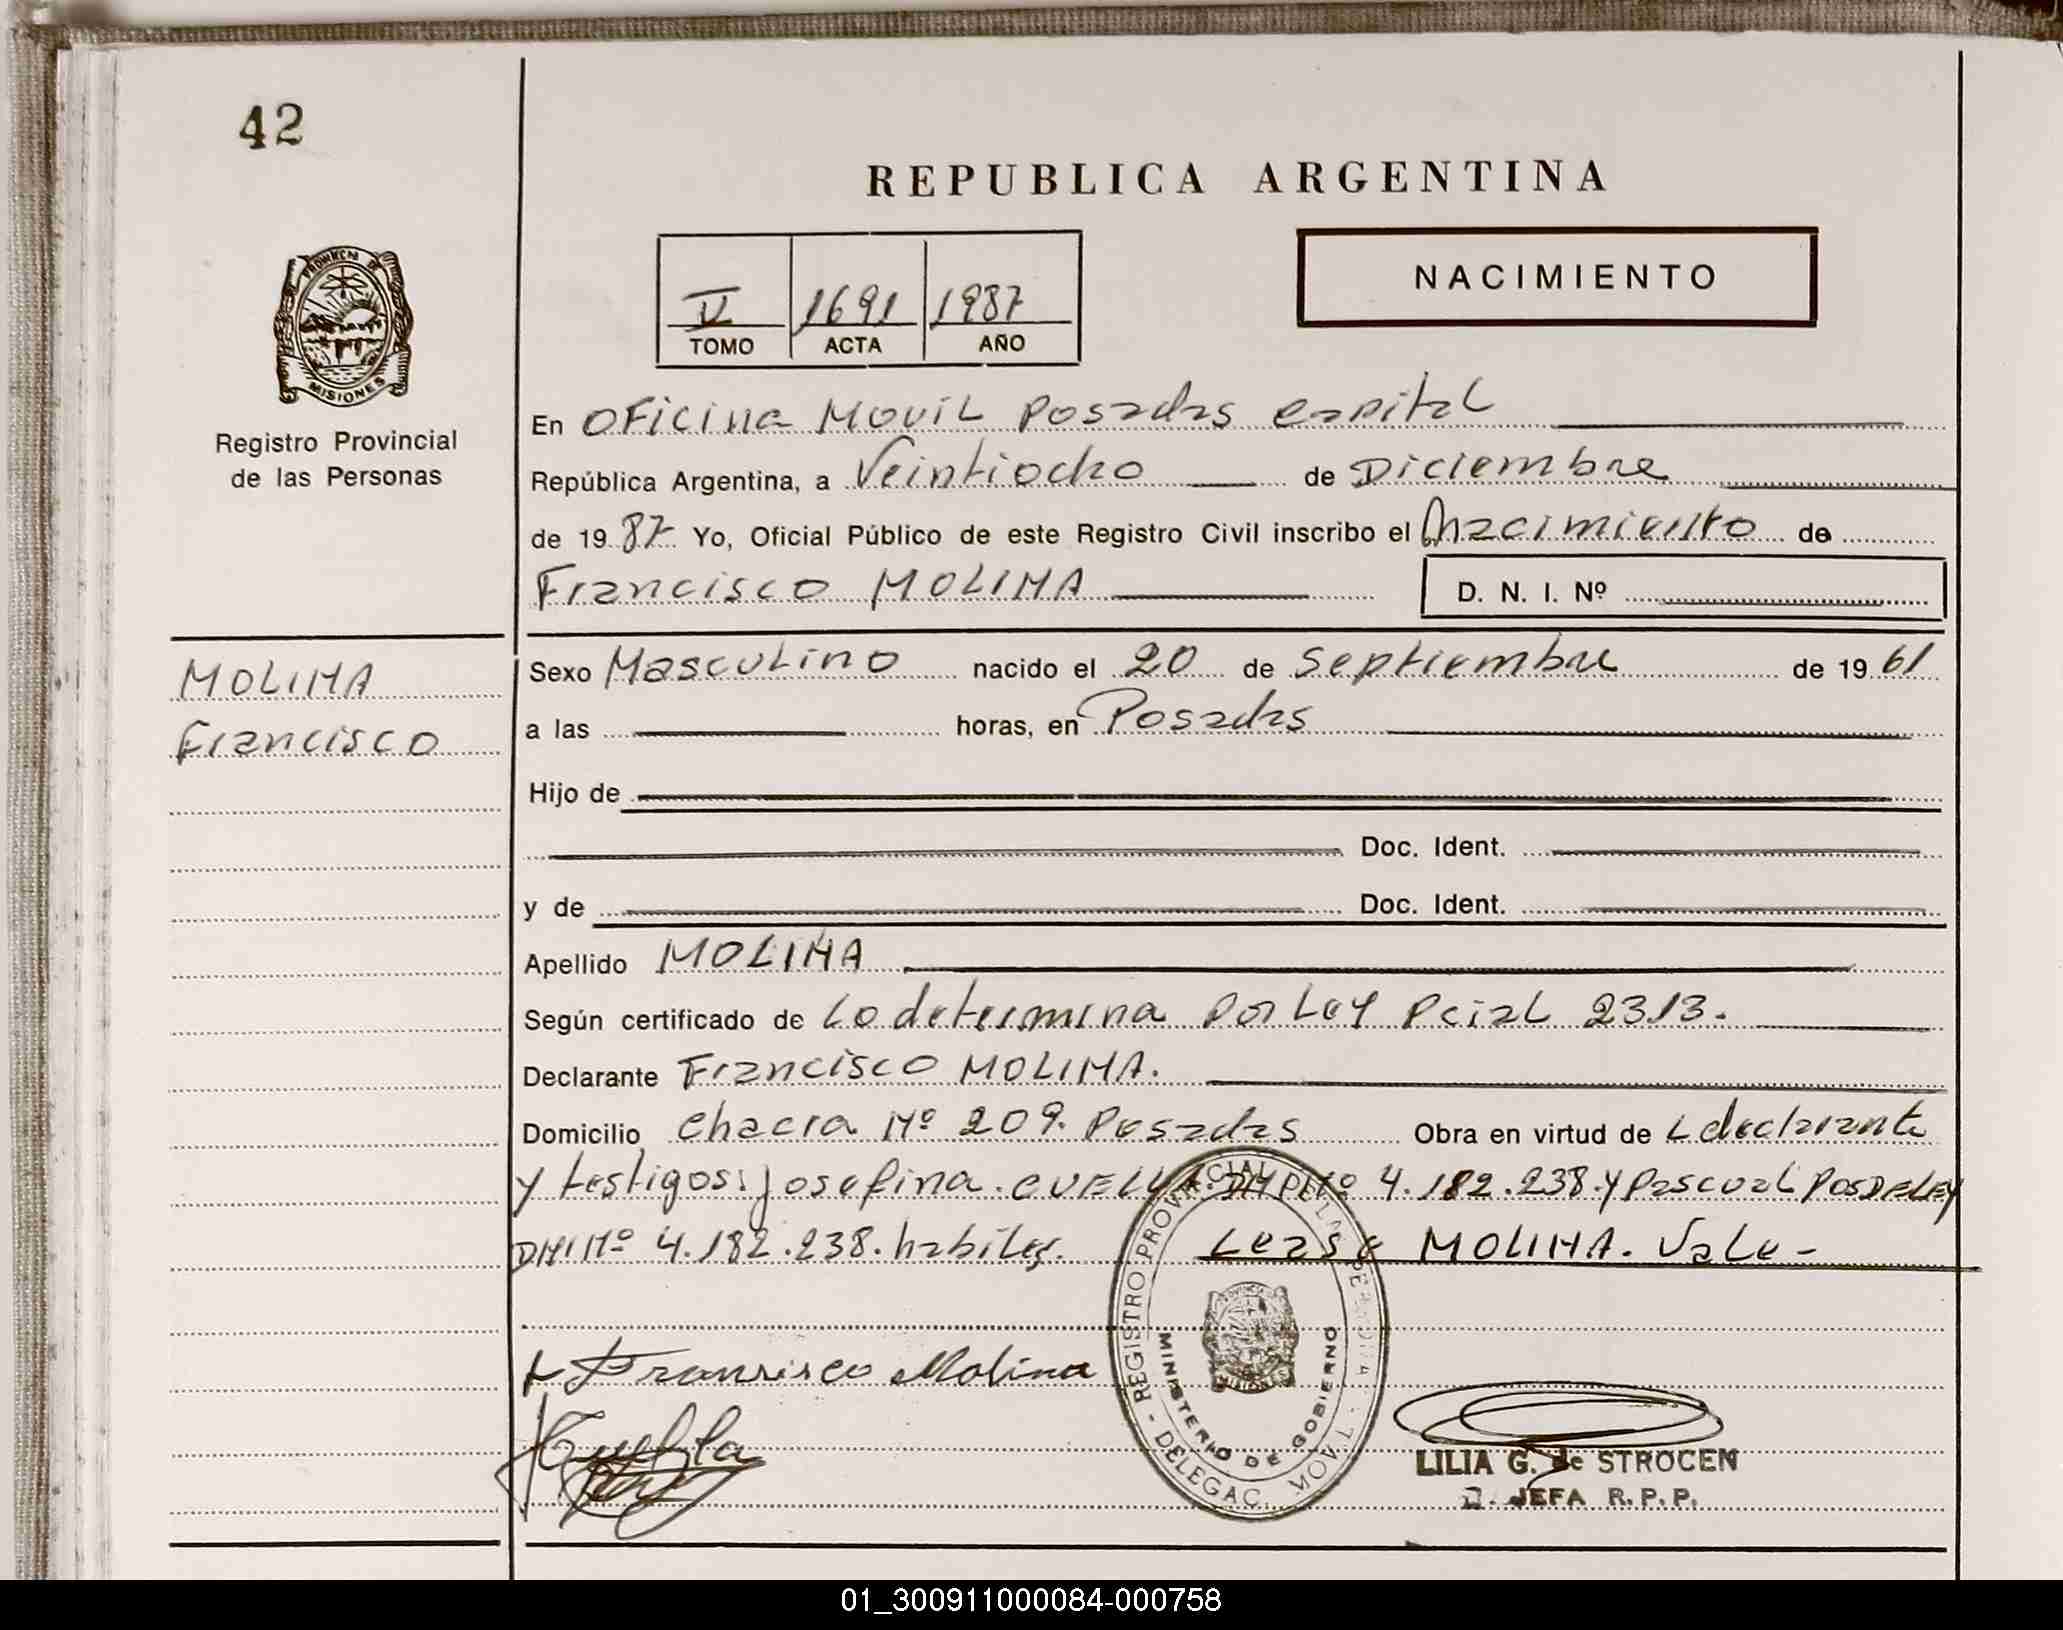 42
REPUBLICA ARGENTINA
PROVINCIA DE
MISIONES
Registro Provincial
de las Personas
V 1691 1987
TOMO ACTA AÑO
NACIMIENTO
En Oficina Movil Posadas capital
República Argentina, a Veintiocho de Diciembre
de 19 87 Yo, Oficial Público de este Registro Civil inscribo el Nacimiento de
Francisco MOLINA D. N. I. Nº
MOLINA
Francisco
Sexo Masculino nacido el 20 de Septiembre de 19 61
a las horas, en Posadas
Hijo de
Doc. Ident.
y de Doc. Ident.
Apellido MOLINA
Según certificado de Lo determina Por Ley Pcial 2313.
Declarante Francisco MOLINA.
Domicilio chacra Nº 209. Posadas Obra en virtud de L declarante
y testigos: Josefina DNI Nº 4.182.238. y Pascual
DNI Nº 4.182.238. habiles. Lease MOLINA. Vale -
Francisco Molina
REGISTRO PROVINCIAL DE LAS PERSONAS - DELEGAC. MOVIL -
MINISTERIO DE GOBIERNO
MISIONES
LILIA G. de STROCEN
JEFA R.P.P.
01_300911000084-000758